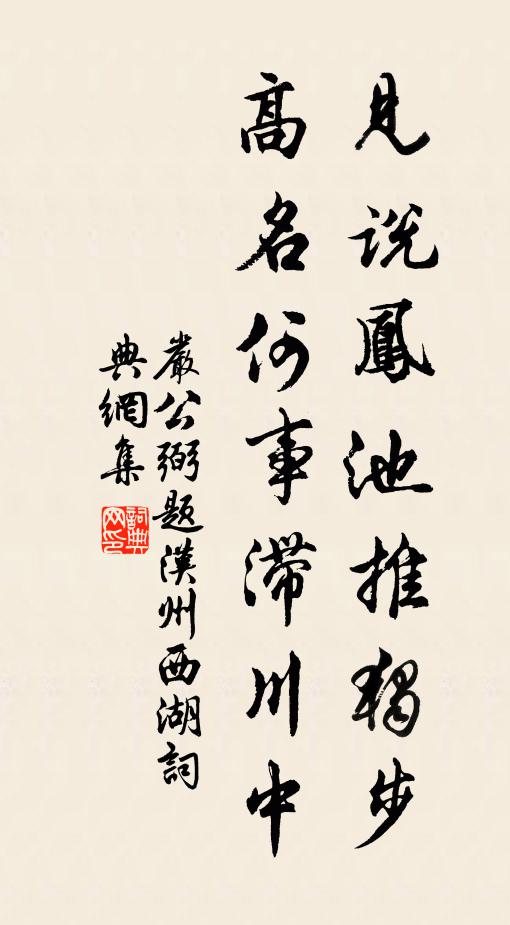 見説鳳池推獨步
高名何事滯川中
嚴公弼題漢州西湖詞
典網集
詞典网印